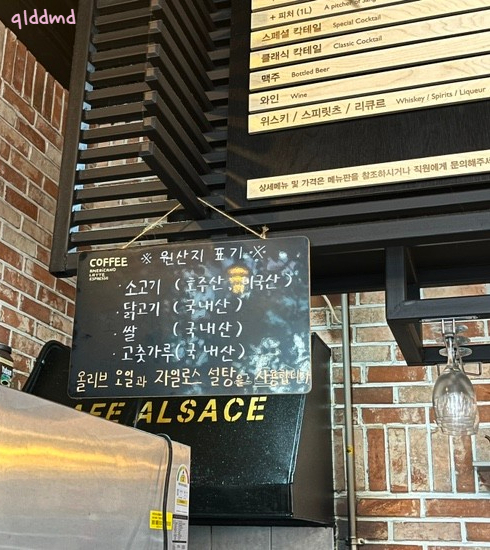 qlddmd
+ 피처 (1L) A pitcher of
스페셜 칵테일 Special Cocktail
클래식 칵테일 Classic Cocktail
맥주 Bottled Beer
와인 Wine
위스키 / 스피릿츠 / 리큐르 Whiskey / Spirits / Liqueur
상세메뉴 및 가격은 메뉴판을 참조하시거나 직원에게 문의해주세
COFFEE
AMERICANO
LATTE
ESPRESSO
※ 원산지 표기 ※
· 소고기 ( 호주산, 미국산 )
· 닭고기 ( 국내산 )
· 쌀 ( 국내산 )
· 고춧가루 ( 국내산 )
올리브 오일과 자일로스 설탕을 사용합니다
CAFE ALSACE